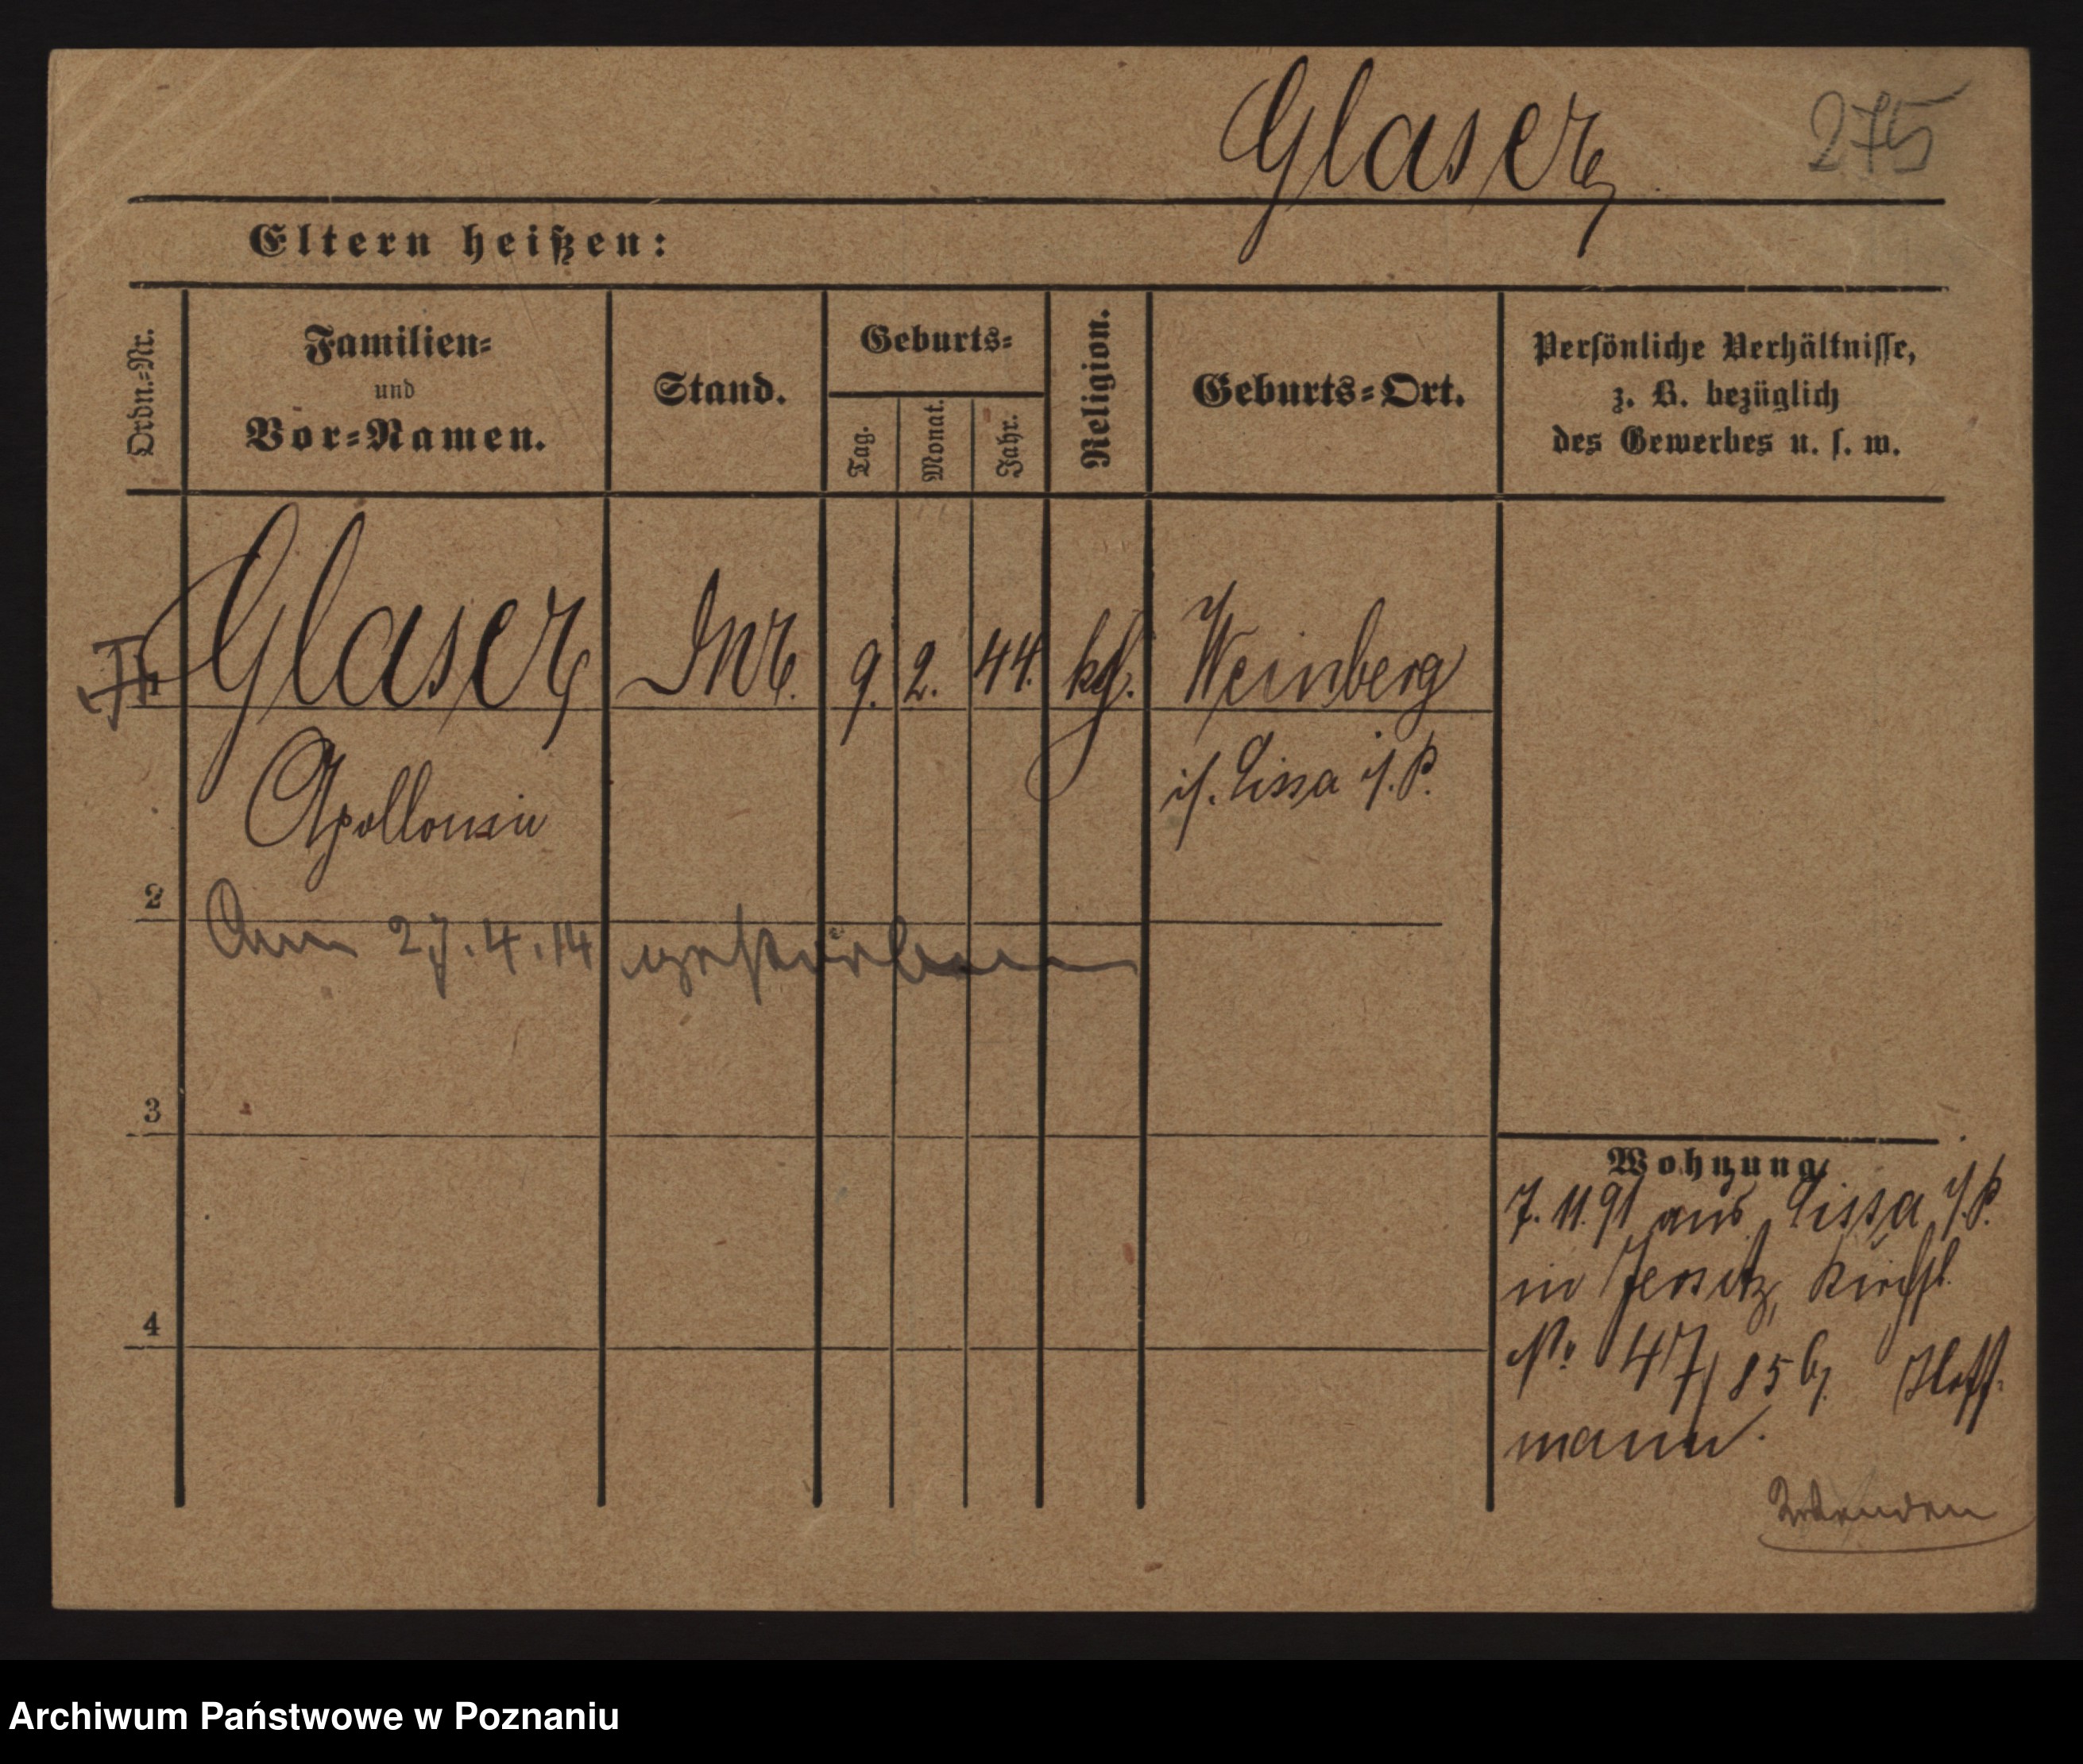 Glaser
275
Eltern heißen:
Ordn.-Nr.
Familien-
und
Vor-Namen.
Stand.
Geburts-
Tag.
Monat.
Jahr.
Religion.
Geburts-Ort.
Persönliche Verhältnisse,
z. B. bezüglich
des Gewerbes u. s. w.
1
Glaser
9. 2. 44. kth.
Weinberg
Apollonia
Lissa i/P.
2
Am 27.4.14 gestorben
3
4
Wohnung
7.11.91 aus Lissa i/P.
in Jersitz, Kirchst.
No 47/85 b/. Hoff-
mann.
Wenden
Archiwum Państwowe w Poznaniu